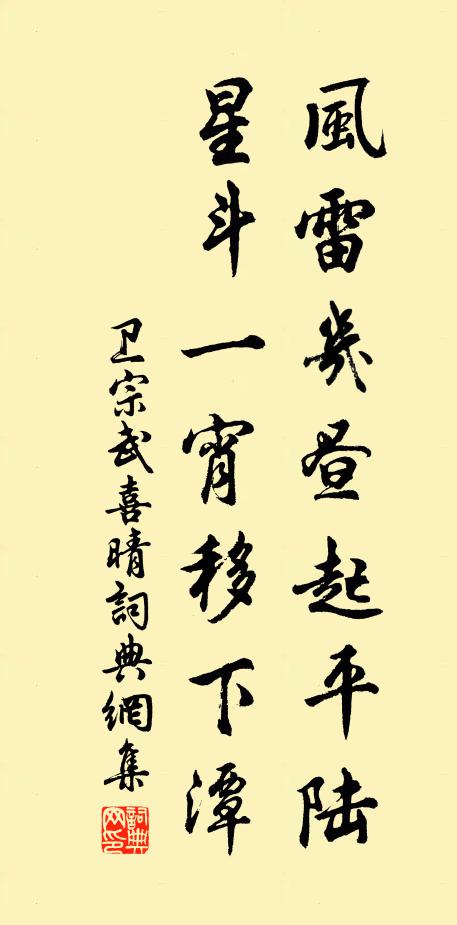 風雷幾昼起平陆
星斗一宵移下潭
卫宗武喜晴詞典網集
詞典网印